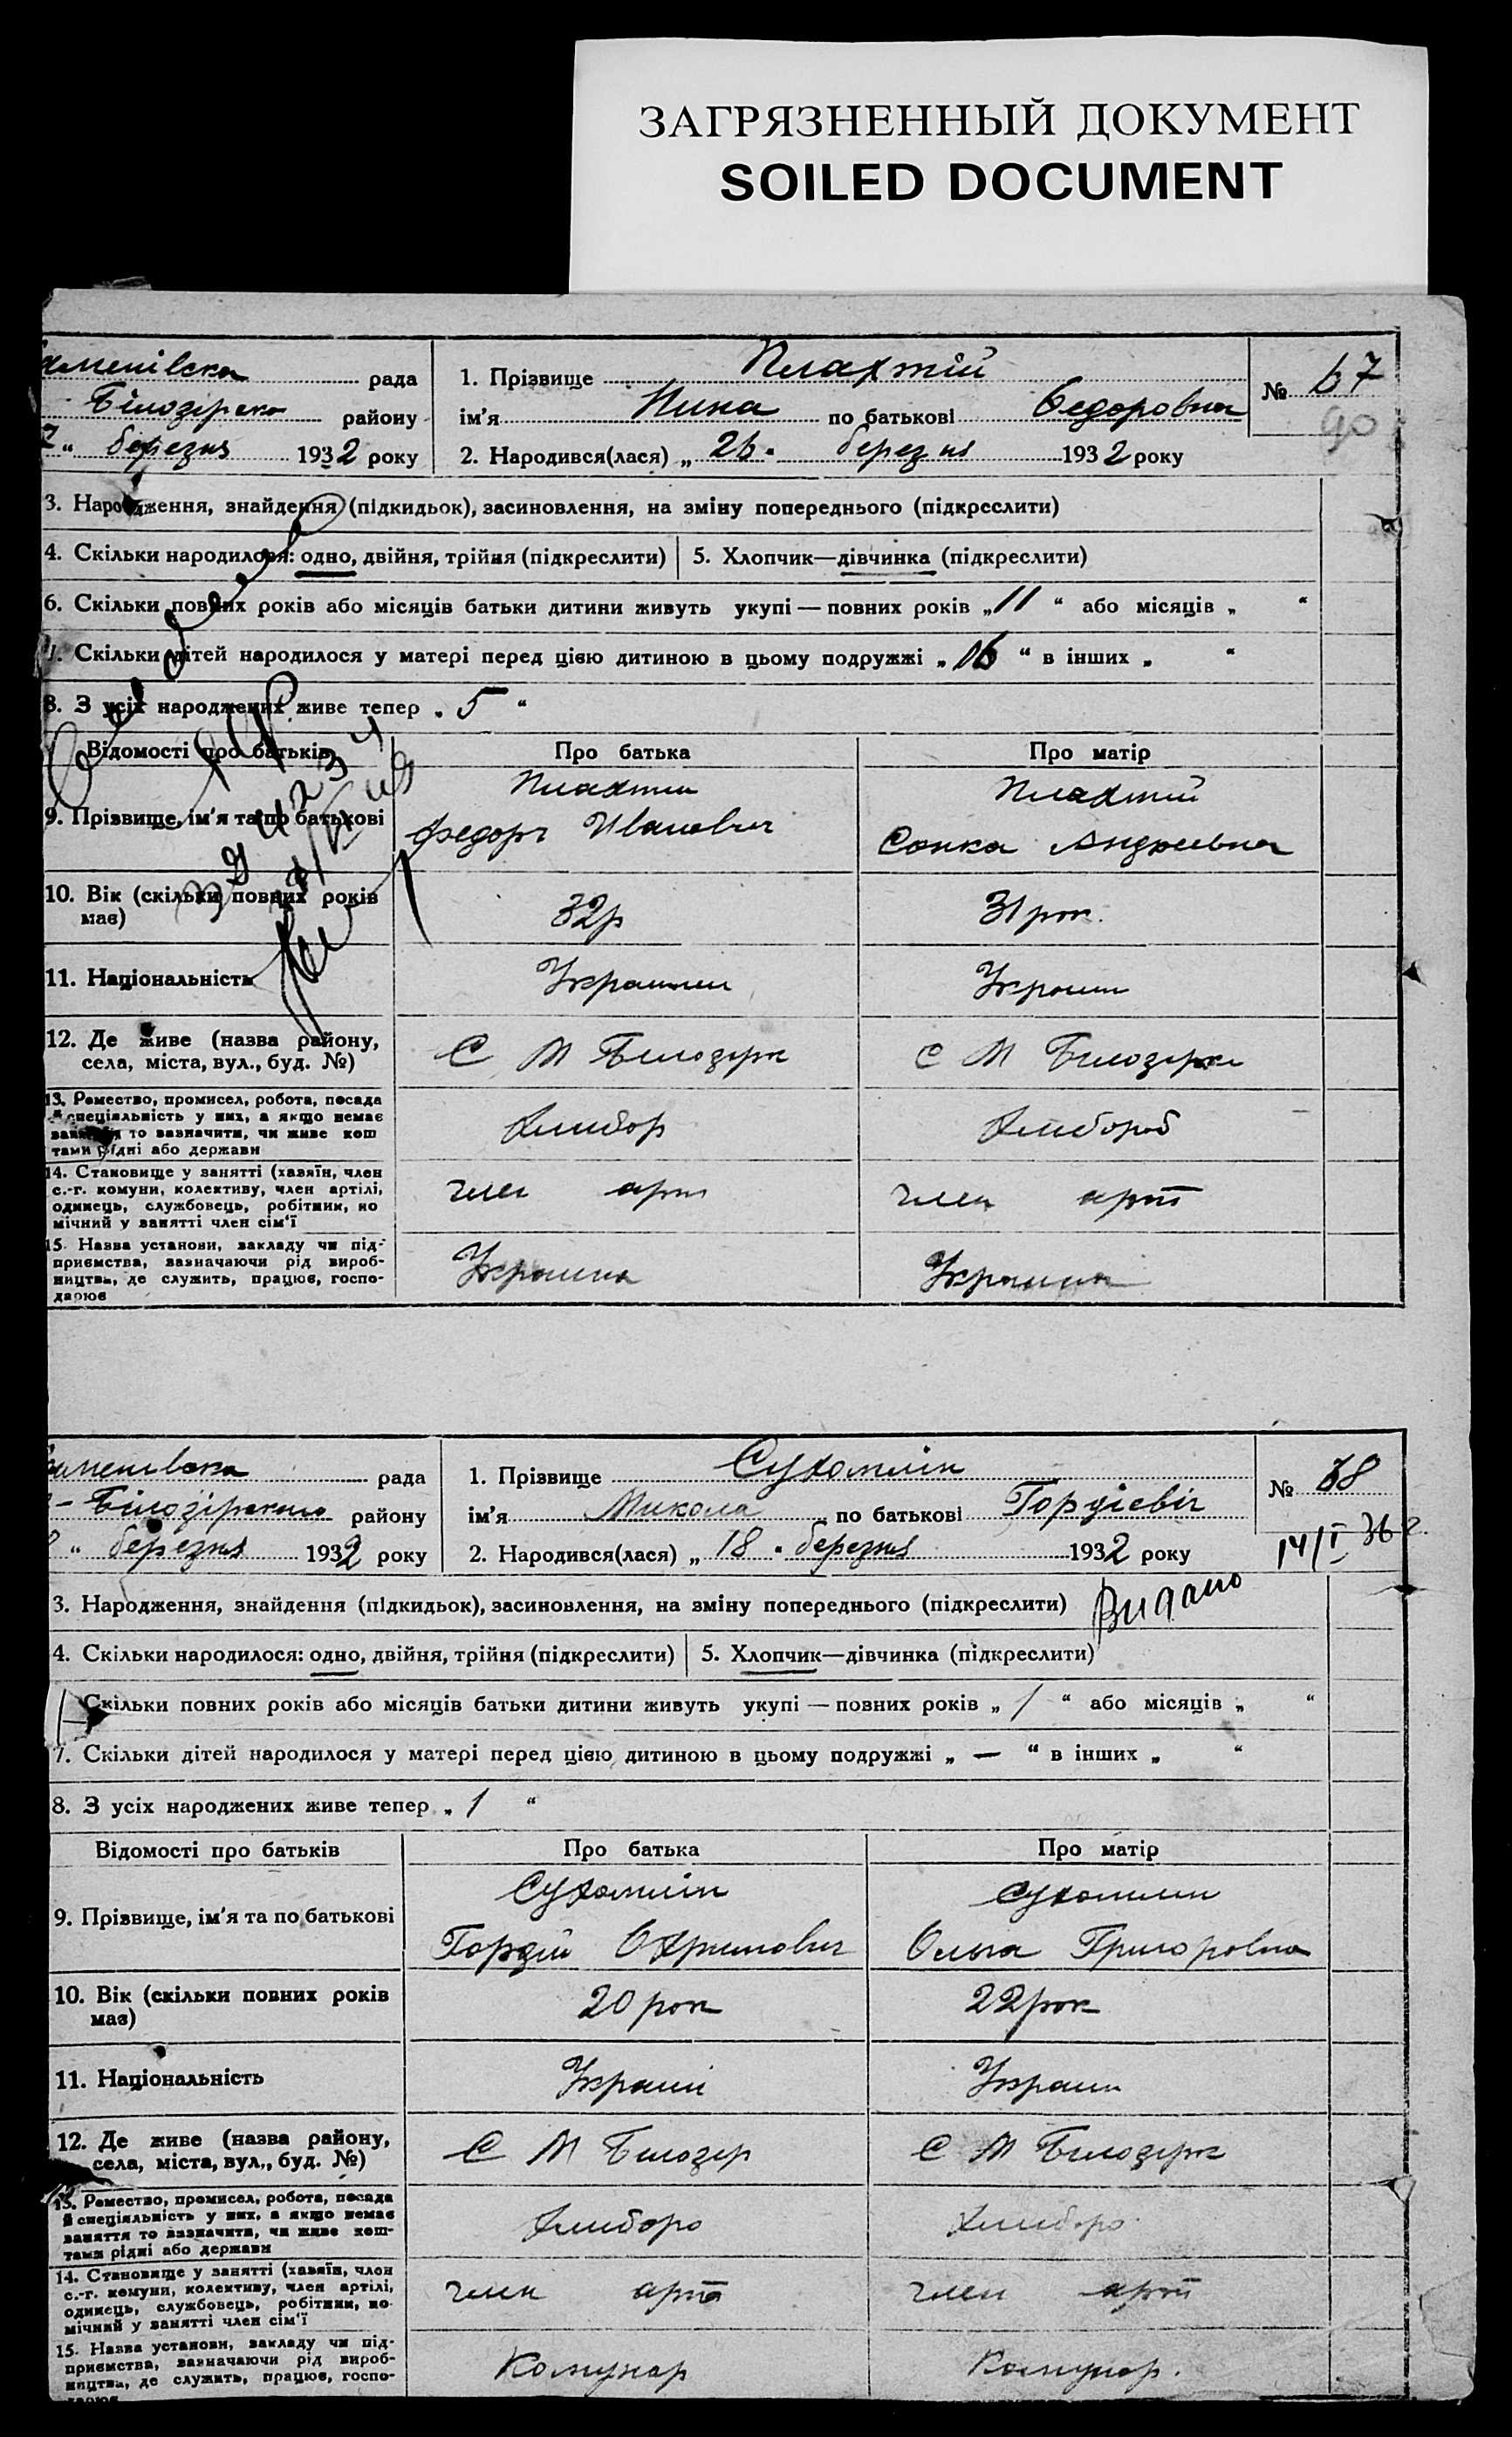 ЗАГРЯЗНЕННЫЙ ДОКУМЕНТ
SOILED DOCUMENT
рада
Білозірсько району
“ березня 1932 року
1. Прізвище Плахтій
ім’я Нина по батькові Федоровна
2. Народився(лася) „ 26 “ березня 1932 року
№ 67
90
3. Народження, знайдення (підкидьок), засиновлення, на зміну попереднього (підкреслити)
4. Скільки народилося: одно, двійня, трійня (підкреслити) 5. Хлопчик—дівчинка (підкреслити)
6. Скільки повних років або місяців батьки дитини живуть укупі — повних років „ 11 “ або місяців „ “
7. Скільки дітей народилося у матері перед цією дитиною в цьому подружжі „ “ в інших „ “
8. З усіх народжених живе тепер „ 5 “
Відомості про батьків Про батька Про матір
9. Прізвище, ім’я та по батькові
Плахтий
Федорг Иванович
Плахтий
Сонка Андреевна
10. Вік (скільки повних років має)
32р
31 рок.
11. Національність
Украинец
Украин
12. Де живе (назва району, села, міста, вул., буд. №)
С М Билозерк
С М Билозерк
13. Ремество, промисел, робота, посада
й спеціяльність у них, а якщо немає
заняття то зазначити, чи живе кош
тами рідні або держави
Хлибор
Хлибороб
14. Становище у занятті (хазяїн, член
с.-г. комуни, колективу, член артілі,
одинець, службовець, робітник, по
мічний у занятті член сім’ї
член арт
член арт
15. Назва установи, закладу чи під-
приємства, зазначаючи рід вироб-
ництва, де служить, працює, госпо-
дарює
Украина
Украина
рада
– Білозірського району
“ березня 1932 року
1. Прізвище Сухомлін
ім’я Микола по батькові Гордієвіч
2. Народився(лася) „ 18 “ березня 1932 року
№ 68
14/I 36 г.
Видано
3. Народження, знайдення (підкидьок), засиновлення, на зміну попереднього (підкреслити)
4. Скільки народилося: одно, двійня, трійня (підкреслити) 5. Хлопчик—дівчинка (підкреслити)
Скільки повних років або місяців батьки дитини живуть укупі — повних років „ 1 “ або місяців „ “
7. Скільки дітей народилося у матері перед цією дитиною в цьому подружжі „ — “ в інших „ “
8. З усіх народжених живе тепер „ 1 “
Відомості про батьків Про батька Про матір
9. Прізвище, ім’я та по батькові
Сухомлін
Гордій Охримович
Сухомлин
Ольга Григоровна
10. Вік (скільки повних років має)
20 рок
22 рок
11. Національність
Украин
Украин
12. Де живе (назва району, села, міста, вул., буд. №)
С М Билозер
С М Билозерк
13. Ремество, промисел, робота, посада
й спеціяльність у них, а якщо немає
заняття то зазначити, чи живе кош-
тами рідні або держави
Хлиборо
Хлиборо
14. Становище у занятті (хазяїн, член
с.-г. комуни, колективу, член артілі,
одинець, службовець, робітник, по-
мічний у занятті член сім’ї
член арт
член арт
15. Назва установи, закладу чи під-
приємства, зазначаючи рід вироб-
ництва, де служить, працює, госпо-
дарює
Комунар
Комунар.